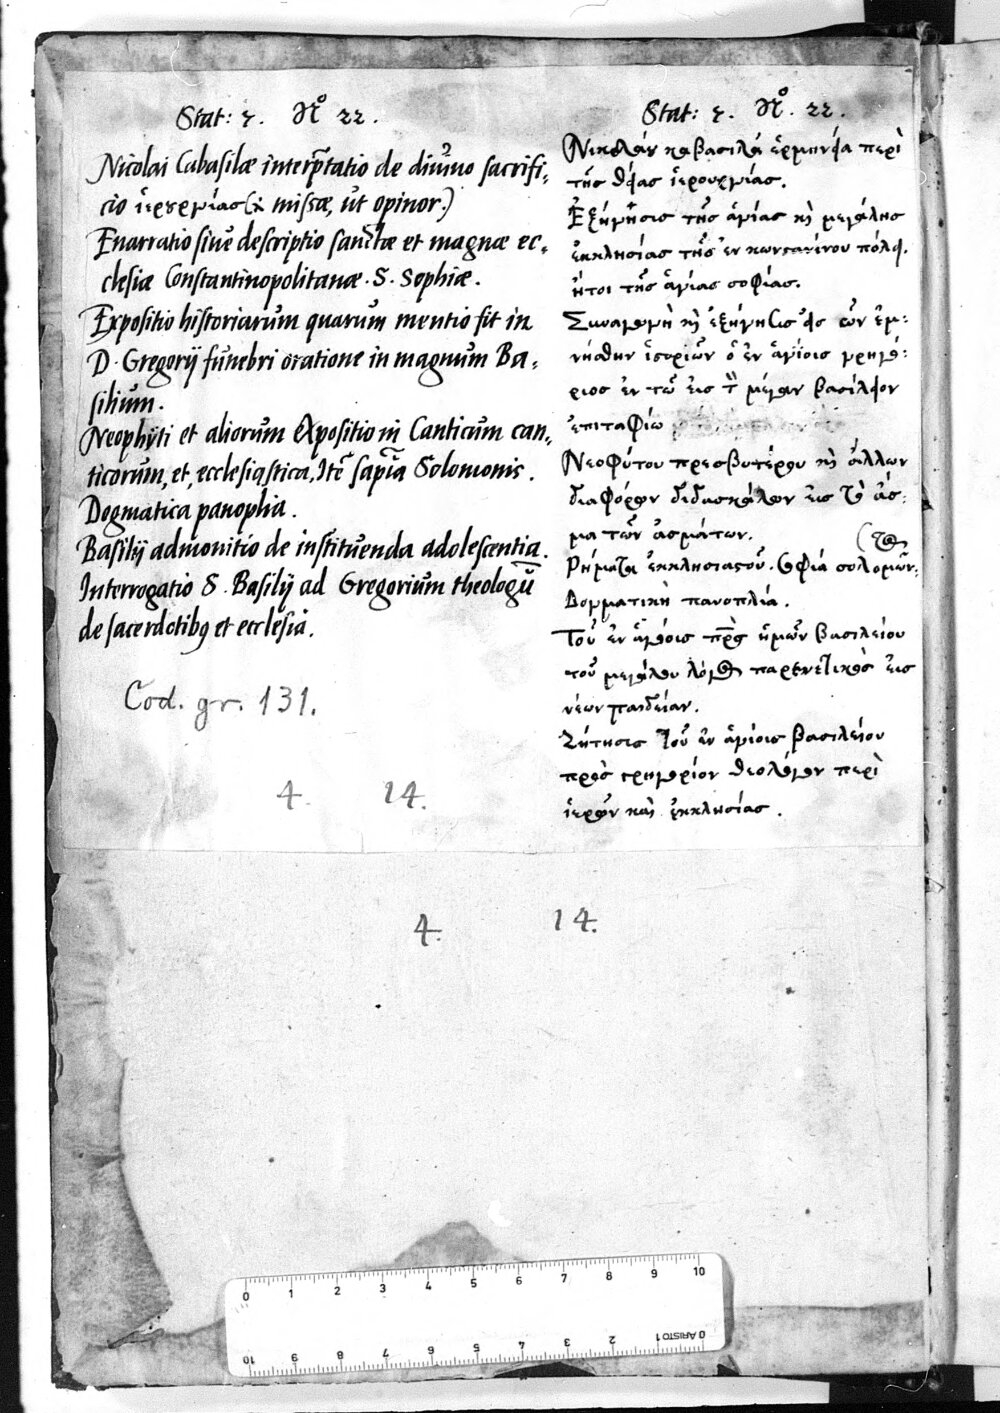 Stat: 7. No 22.
Nicolai Cabasilæ interp̅tatio de divino sacrifi-
cio ἱερουργίας (i. missæ, ut opinor.)
Enarratio sive descriptio sanctæ et magnæ ec-
clesiæ Constantinopolitanæ. S. Sophiæ.
Expositio historiarum quarum mentio fit in
D. Gregorij funebri oratione in magnum Ba-
silium.
Neophyti et aliorum expositio in Canticum can-
ticorum, et, ecclesiastica, Itē sapīa Solomonis.
Dogmatica panoplia.
Basilij admonitio de instituenda adolescentia.
Interrogatio S. Basilij ad Gregorium theologū
de sacerdotibꝫ et ecclesia.
Cod. gr. 131.
4. 14.
Stat: 7. No. 22.
Νικολάου καβασιλά ἑρμηνεία περὶ
τῆς θείας ἱερουργίας.
Ἐξήγησις τῆς ἁγίας κὶ μεγάλης
ἐκκλησίας τῆς ἐν κωνσαντίνου πόλει.
ἤτοι τῆς ἁγίας σοφίας.
Συναγωγὴ κὶ ἐξήγησις ὧν ἐμ-
νήσθην ἱστοριῶν ὁ ἐν ἁγίοις γρηγό-
ριος ἐν τῶ εἰς τ μέγαν βασίλειον
ἐπιταφίω
Νεοφύτου πρεσβυτέρου κὶ ἄλλων
διαφόρων διδασκάλων εἰς τὸ ἄσ-
μα τῶν ἀσμάτων.
Ῥήματα ἐκκλησιαστοῦ. Σοφία σολομῶν-
(τος
Δογματικὴ πανοπλία.
Τοῦ ἐν ἁγίοις πρ̅ς ἡμῶν βασιλείου
τοῦ μεγάλου λόγος παρενετικὸς εἰς
νέων παιδείαν.
Ζήτησις τοῦ ἐν ἁγίοις βασιλείου
πρὸς γρηγόριον θεολόγον περὶ
ἱερῶν καὶ ἐκκλησίας.
4. 14.
0 1 2 3 4 5 6 7 8 9 10
0 ARISTO 1 2 3 4 5 6 7 8 9 10